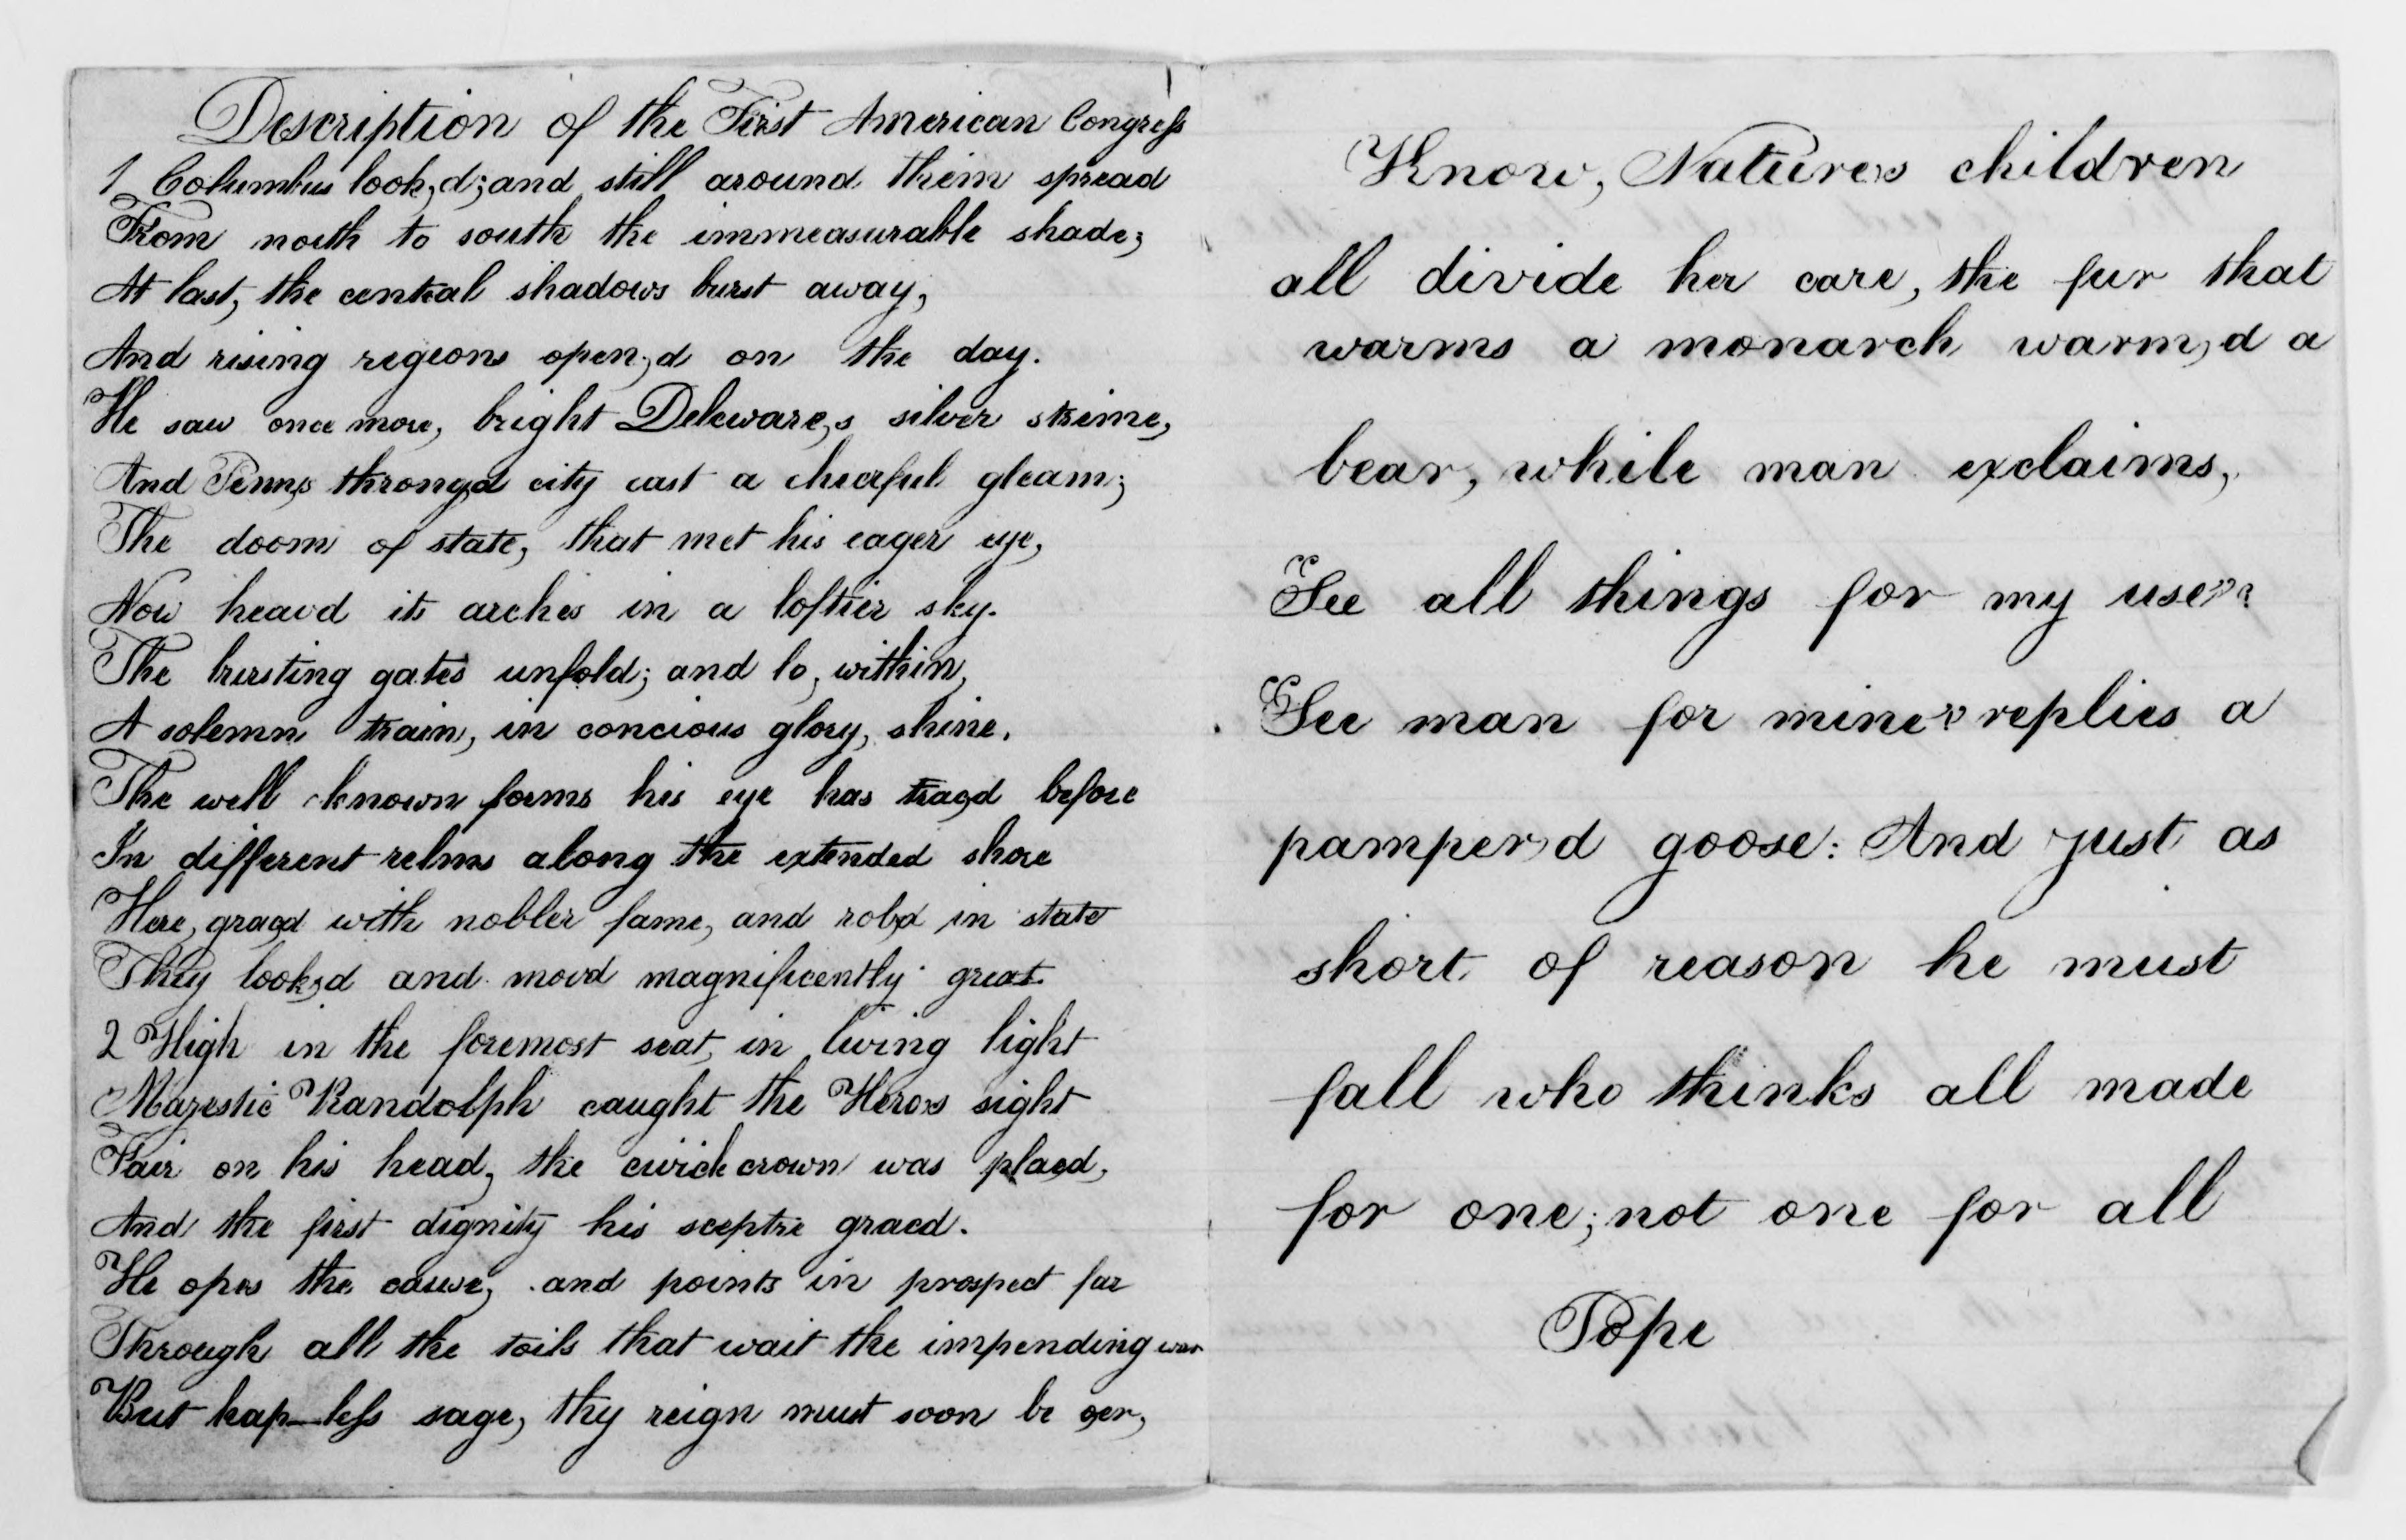 Description of the First American Congress
1 Columbus look,d; and still around them spread
From north to south the immeasurable shade;
At last, the central shadows burst away,
And rising regions open,d on the day.
He saw once more, bright Deleware,s silver streme,
And Penn,s throng,d city cast a cheerful gleam;
The doom of state, that met his eager eye,
Now heav,d its arches in a loftier sky.
The bursting gates unfold; and lo, within,
A solemn train, in concious glory, shine.
The well known forms his eye has trac,d before
In different relms along the extended shore
Here, grac,d with nobler fame, and rob,d in state
They look,d and mov,d magnificently great
2 High in the foremost seat, in living light
Majestic Randolph caught the Hero,s sight
Fair on his head, the civick crown was plac,d,
And the first dignity his sceptre grac,d.
He opes the cause, and points in prospect far
Through all the toils that wait the impending war
But hap-less sage, thy reign must soon be o,er,
Know, Nature,s children
all divide her care, the fur that
warms a monarch warm,d a
bear, while man exclaims,
See all things for my use,,
See man for mine,, replies a
pamper,d goose: And just as
short of reason he must
fall who thinks all made
for one; not one for all
Pope